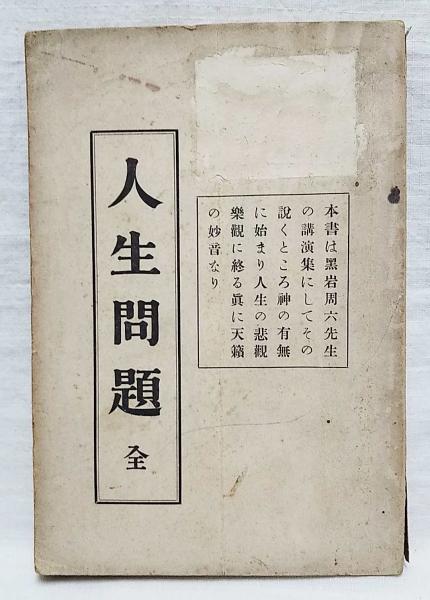 本書は黑岩周六先生
の講演集にしてその
說くところ神の有無
に始まり人生の悲觀
樂觀に終る眞に天籟
の妙音なり
人生問題 全